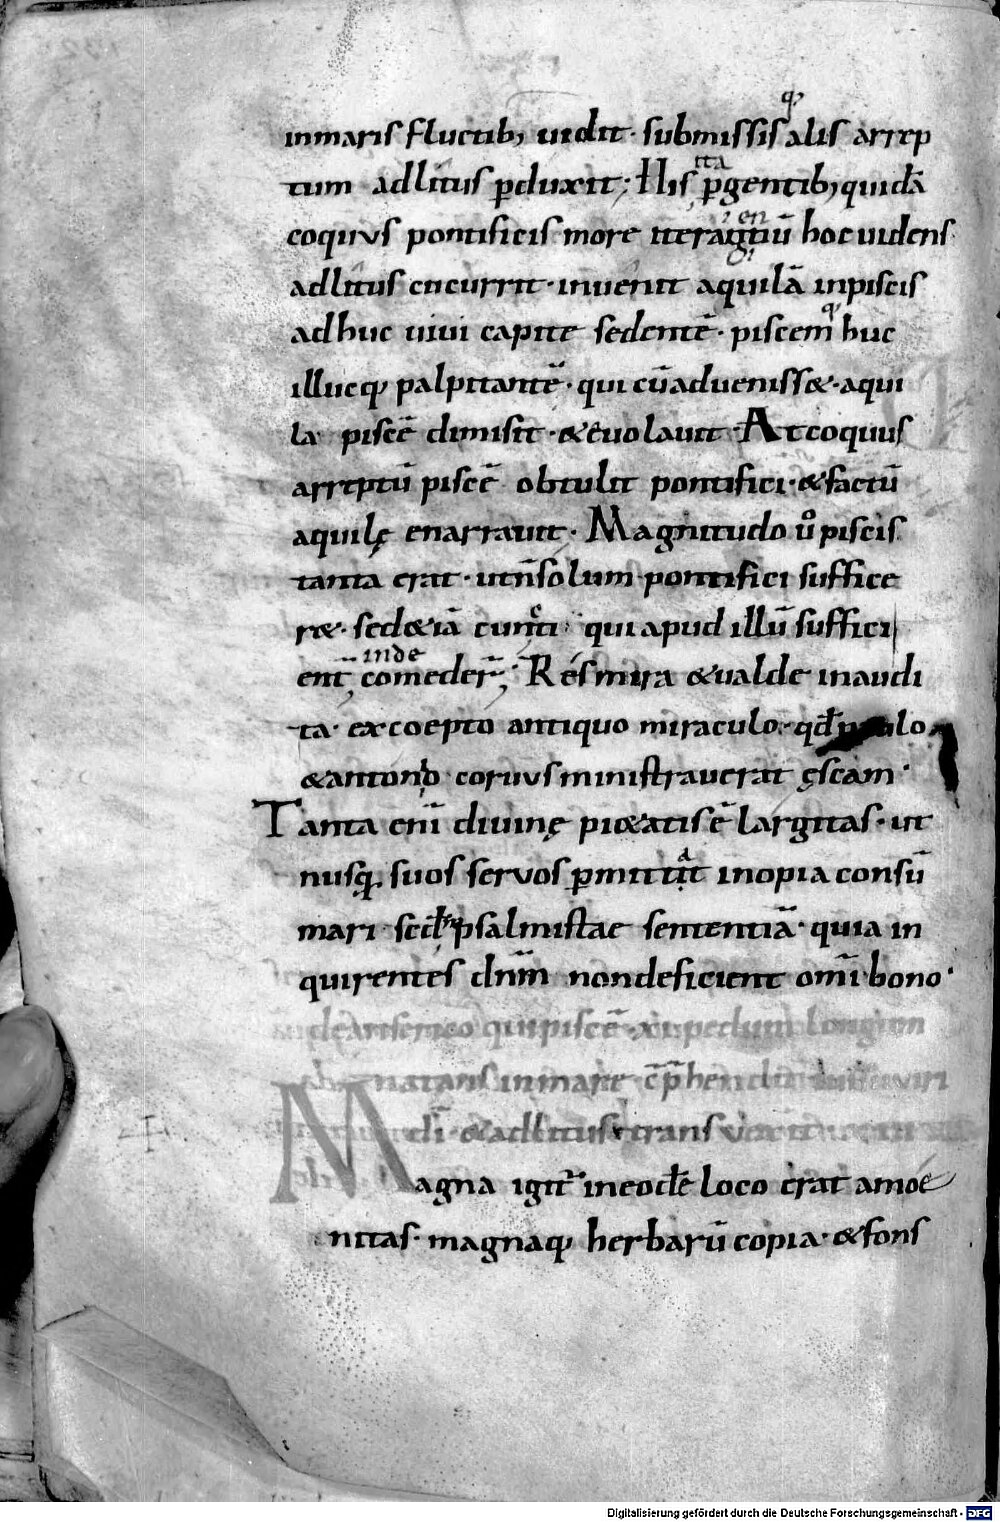 inmaris fluctib; uidit· submissisq; alis arrep
tum adlitus ꝑduxit; His ita ꝑgentib; quidā
coquus pontificis more iteragentiū hoc uidens
adlitus cucurrit· inuenit aquilā inpiscis
adhuc uiui capite sedentē· piscemq; huc
illucq; palpitantē· qui cūaduenisset· aqui
la piscē dimisit· &euolauit· Atcoquus
arreptū piscē obtulit pontifici· &factū
aquilę enarrauit· Magnitudo ůpiscis
tanta erat· utn̄solum pontifici suffice
ret· sed&iā cuncti qui apud illū suffici
ent̄ inde comeder̄; Res mira &ualde inaudi
ta· excoepto antiquo miraculo· qđ paulo
&antonio coruus ministrauerat ęscam·
Tanta enī diuinę pi&atis ē largitas· ut
nusq suos seruos ꝑmittat inopia consū
mari secđ psalmistae sententiā· quia in
quirentes dn̄m nondeficient omī bono·
qui piscē xi pedum
natans inmare cp̄hendit
di· &adlitus
Magna igit̄ ineodē loco erat amoe
nitas· magnaq; herbarū copia· &fons
Digitalisierung gefördert durch die Deutsche Forschungsgemeinschaft - DFG